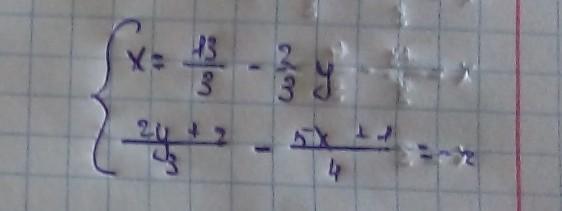 x = 13/3 - 2/3 y
(2y + 2)/3 - (5x + 1)/4 =